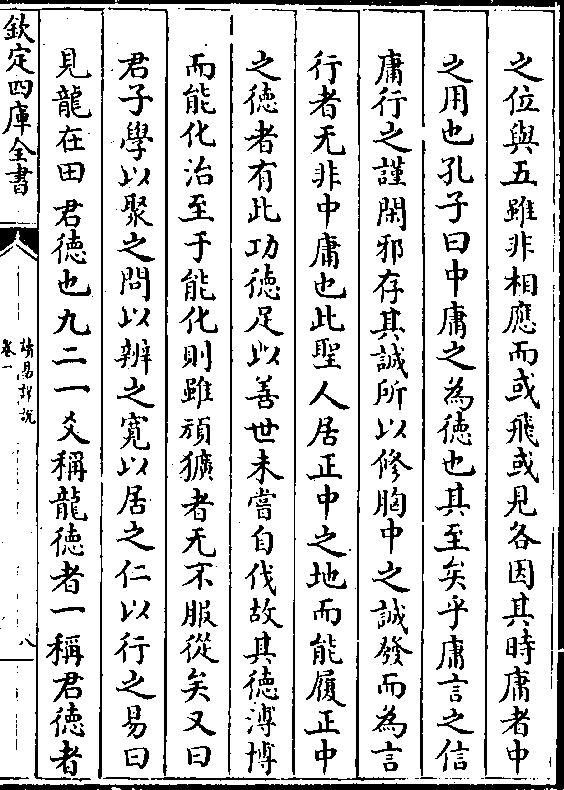 之位與五雖非相應而或飛或見各因其時庸者中
之用也孔子曰中庸之為徳也其至矣乎庸言之信
庸行之謹閑邪存其誠所以修胸中之誠發而為言
行者无非中庸也此聖人居正中之地而能履正中
之徳者有此功徳足以善世未嘗自伐故其徳溥博
而能化治至于能化則雖頑獷者无不服從矣又曰
君子學以聚之問以辨之寛以居之仁以行之易曰
見龍在田君徳也九二一爻稱龍徳者一稱君徳者
欽定四庫全書
易詳說
卷一
八